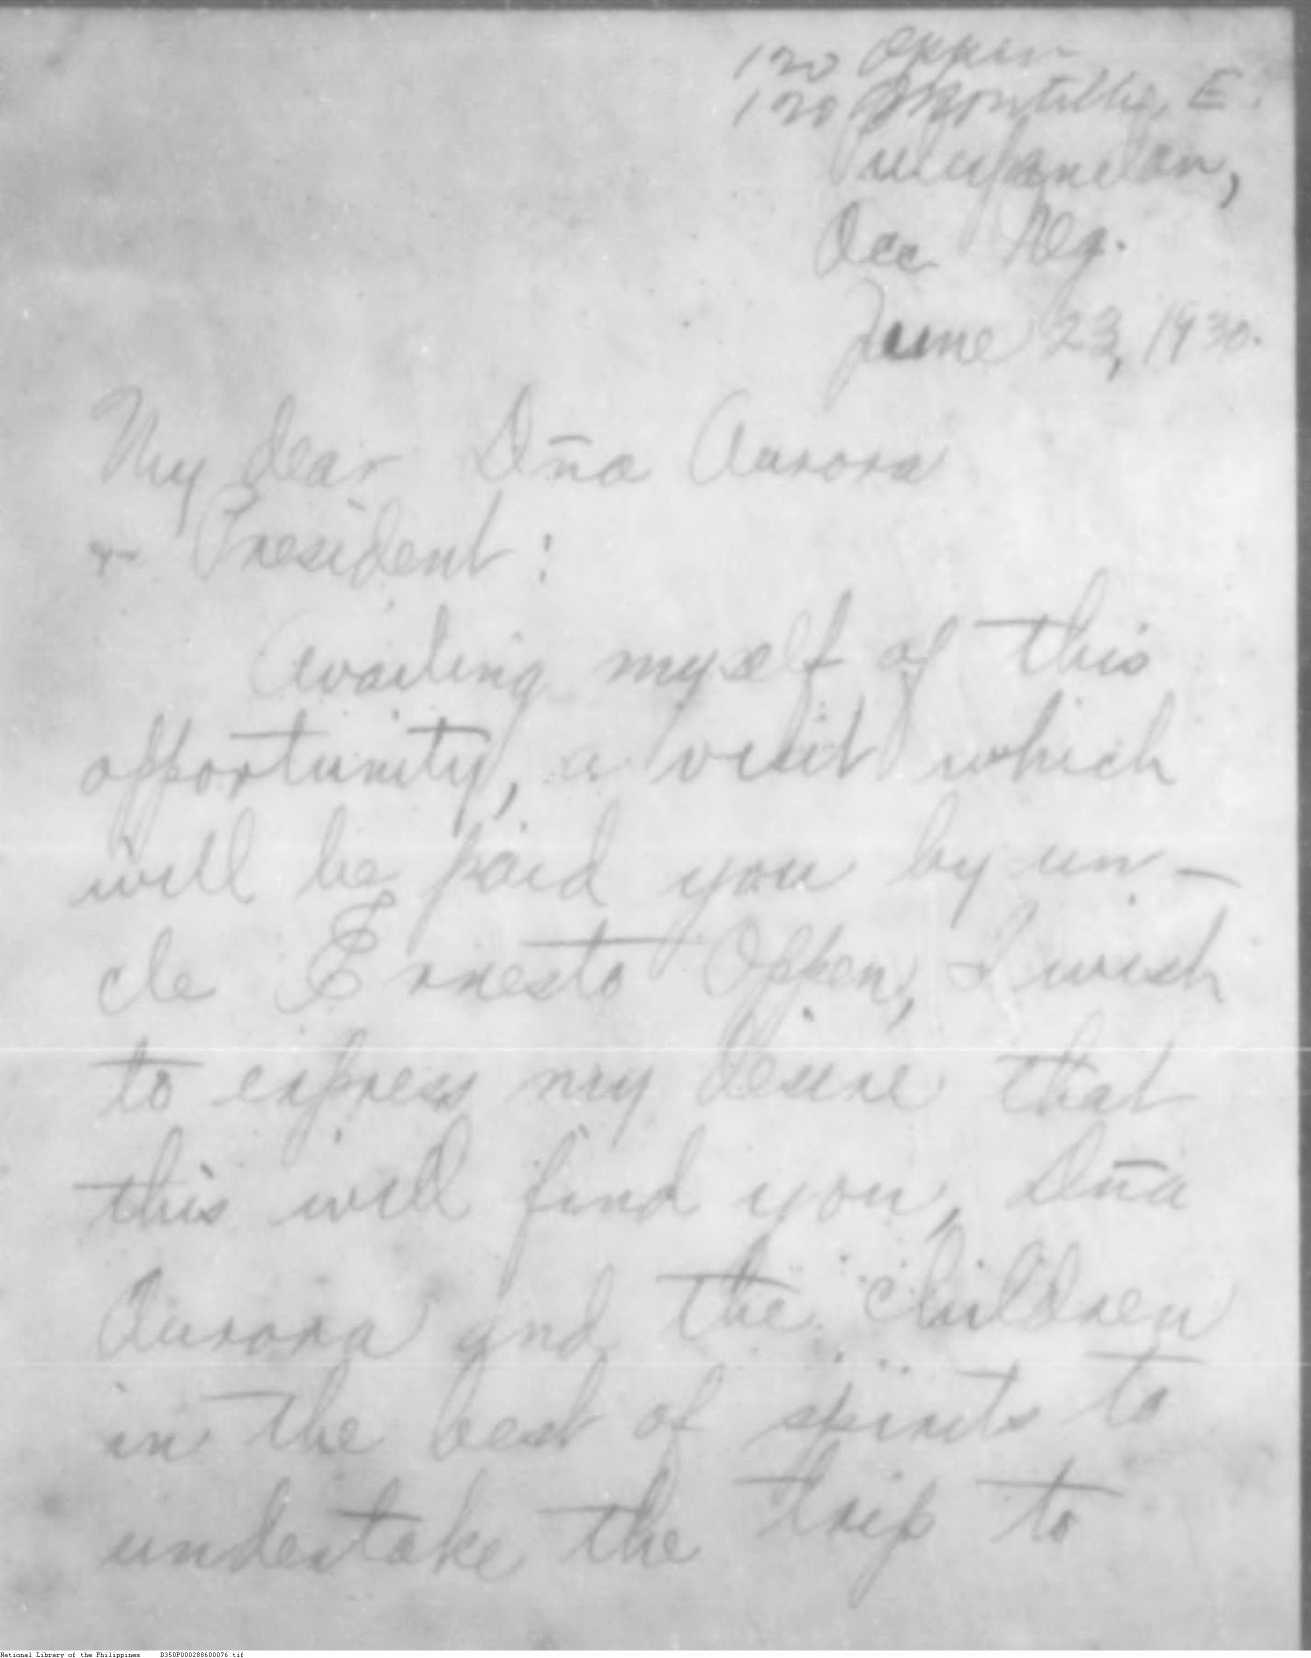 120 Oppen
120 Montilla, E.
Pulupandan,
Occ. Neg.
June 23, 1930.
My dear Dña Aurora
& President:
Availing myself of this
opportunity, a visit which
will be paid you by un-
cle Ernesto Oppen, I wish
to express my desire that
this will find you, Dña
Aurora and the children
in the best of spirits to
undertake the trip to
National Library of the Philippines D350P000288600076.tif